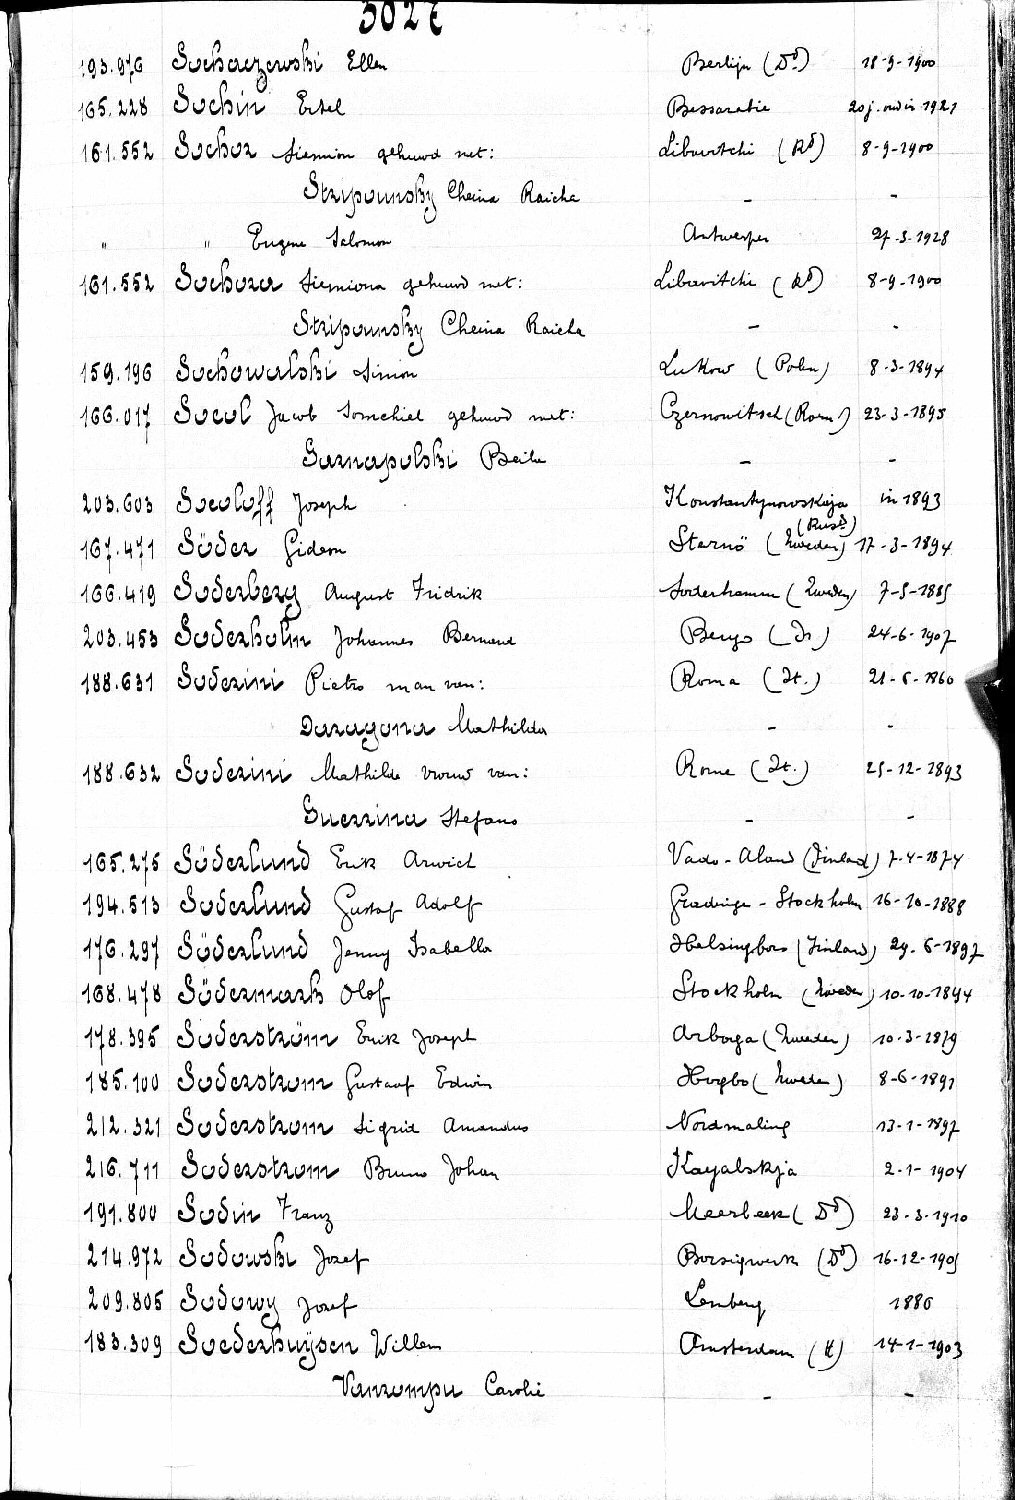 193.976 Sochaczewski Ellen Berlijn (Dd) 18-9-1900
165.228 Sochin Estel Bessarabie 20 j. oud in 1921
161.552 Sochor Siemion gehuwd met: Libavitchi (Rd) 8-9-1900
Stripounsky Cheina Raicha - -
" " Eugene Salomon Antwerpen 27-3-1928
161.552 Sochora Siemiona gehuwd met: Libavitchi (Rd) 8-9-1900
Stripounsky Cheina Raicla - -
159.196 Sochowalski Simon Lukow (Polen) 8-3-1894
166.017 Socol Jacob Somchiel gehuwd met: Czernowitsch (Roem) 23-3-1895
Sarnapolski Beila - -
203.603 Socoloff Joseph Konstantynowskaja in 1893
(Rusd)
167.471 Söder Gideon Sternö (Zweden) 17-3-1894
166.419 Soderberg August Fridrik Soderhamn (Zweden) 7-5-1885
203.453 Soderholm Johannes Bernand (Is) 24-6-1907
188.631 Soderini Pietro man van: Roma (It.) 21-6-1860
Daragona Mathilda - -
188.632 Soderini Mathilde vrouw van: Rome (It.) 25-12-1893
Guerrina Stefano - -
165.275 Söderlund Erik Arwid Vado-Aland (Finland) 7-4-1874
194.513 Soderlund Gustaf Adolf Gradinge-Stockholm 16-10-1888
176.297 Söderlund Jenny Isabella Helsingbors (Finland) 29-6-1897
168.478 Södermark Olof Stockholm (Zweden) 10-10-1894
178.395 Soderström Erik Joseph Arboga (Zweden) 10-3-1879
185.100 Soderstrom Gustaaf Edwin Hogbo (Zweden) 8-6-1891
212.321 Soderstrom Sigrid Amandus Nordmaling 13-1-1897
216.711 Soderstrom Bruno Johan Kayalskja 2-1-1904
191.800 Sodin Franz Meerbeek (Dd) 23-3-1910
214.972 Sodowski Jozef Borsigwerk (Dd) 16-12-1905
209.805 Sodowy Jozef Lemberg 1886
183.309 Soederhuÿsen Willem Amsterdam (H) 14-1-1903
Vanrompu Carolie - -